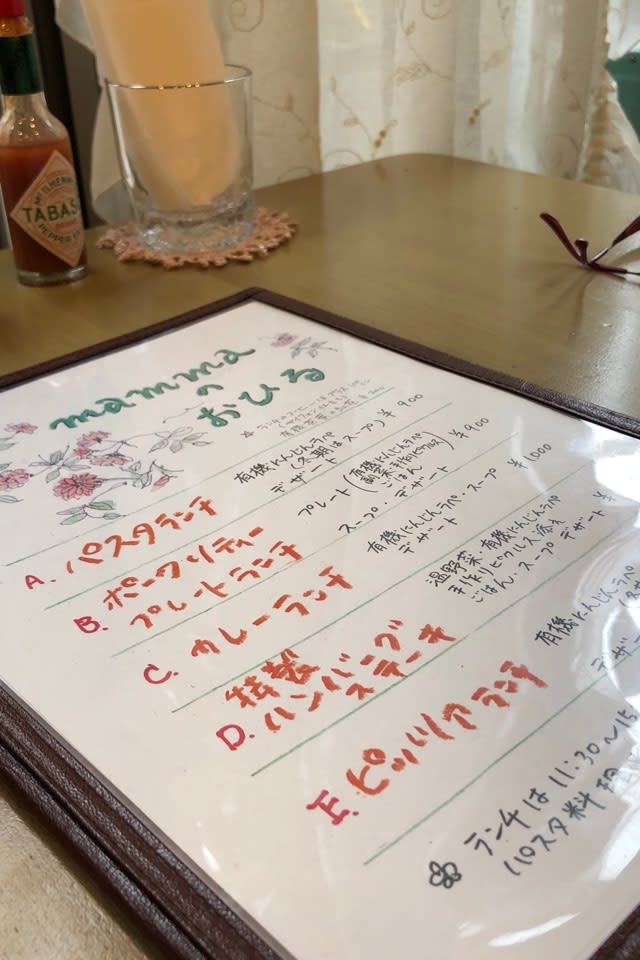 TABAS
PEPPER
mamma
の
おひる
有機にんじんラペ
(冬期はスープ) ¥900
デザート
A. パスタランチ
プレート(有機にんじんラペ
ごはん
スープ・デザート ¥900
B. ポークソテー
プレートランチ
有機にんじんラペ・スープ ¥1000
デザート
C. カレーランチ
温野菜・有機にんじんラペ
手作りピクルス添え
ごはん・スープ デザート ¥
特製
D. ハンバーグ
ステーキ
有機にんじんラペ
デザ
E. ピッツァランチ
ランチは11:30〜15
パスタ料理